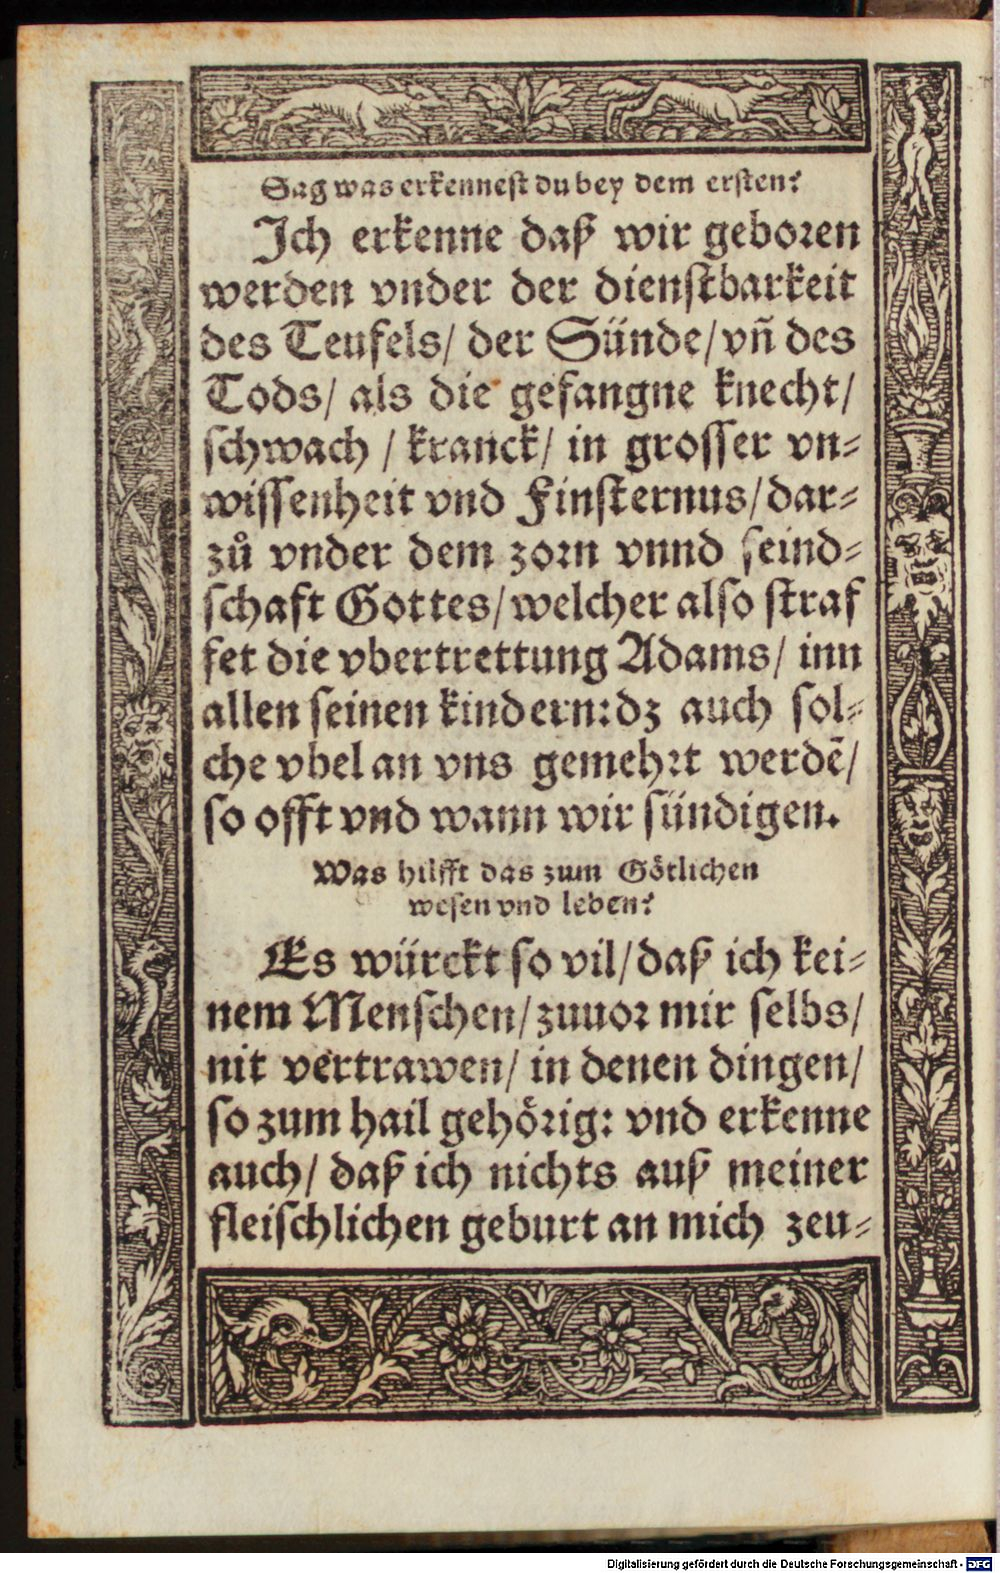 Sag was erkennest du bey dem ersten?
Ich erkenne daß wir geboren
werden vnder der dienstbarkeit
des Teufels/ der Sünde/ vñ des
Tods/ als die gefangne knecht/
schwach / kranck/ in grosser vn-
wissenheit vnd Finsternus/ dar-
zuͦ vnder dem zorn vnnd feind-
schaft Gottes/ welcher also straf
fet die vbertrettung Adams/ inn
allen seinen kindern: dz auch sol-
che vbel an vns gemehrt werdē/
so offt vnd wann wir sündigen.
Was hilfft das zum Götlichen
wesen vnd leben?
Es würckt so vil/ daß ich kei-
nem Menschen/ zuuor mir selbs/
nit vertrawen/ in denen dingen/
so zum hail gehörig: vnd erkenne
auch/ daß ich nichts auß meiner
fleischlichen geburt an mich zeu-
Digitalisierung gefördert durch die Deutsche Forschungsgemeinschaft - DFG